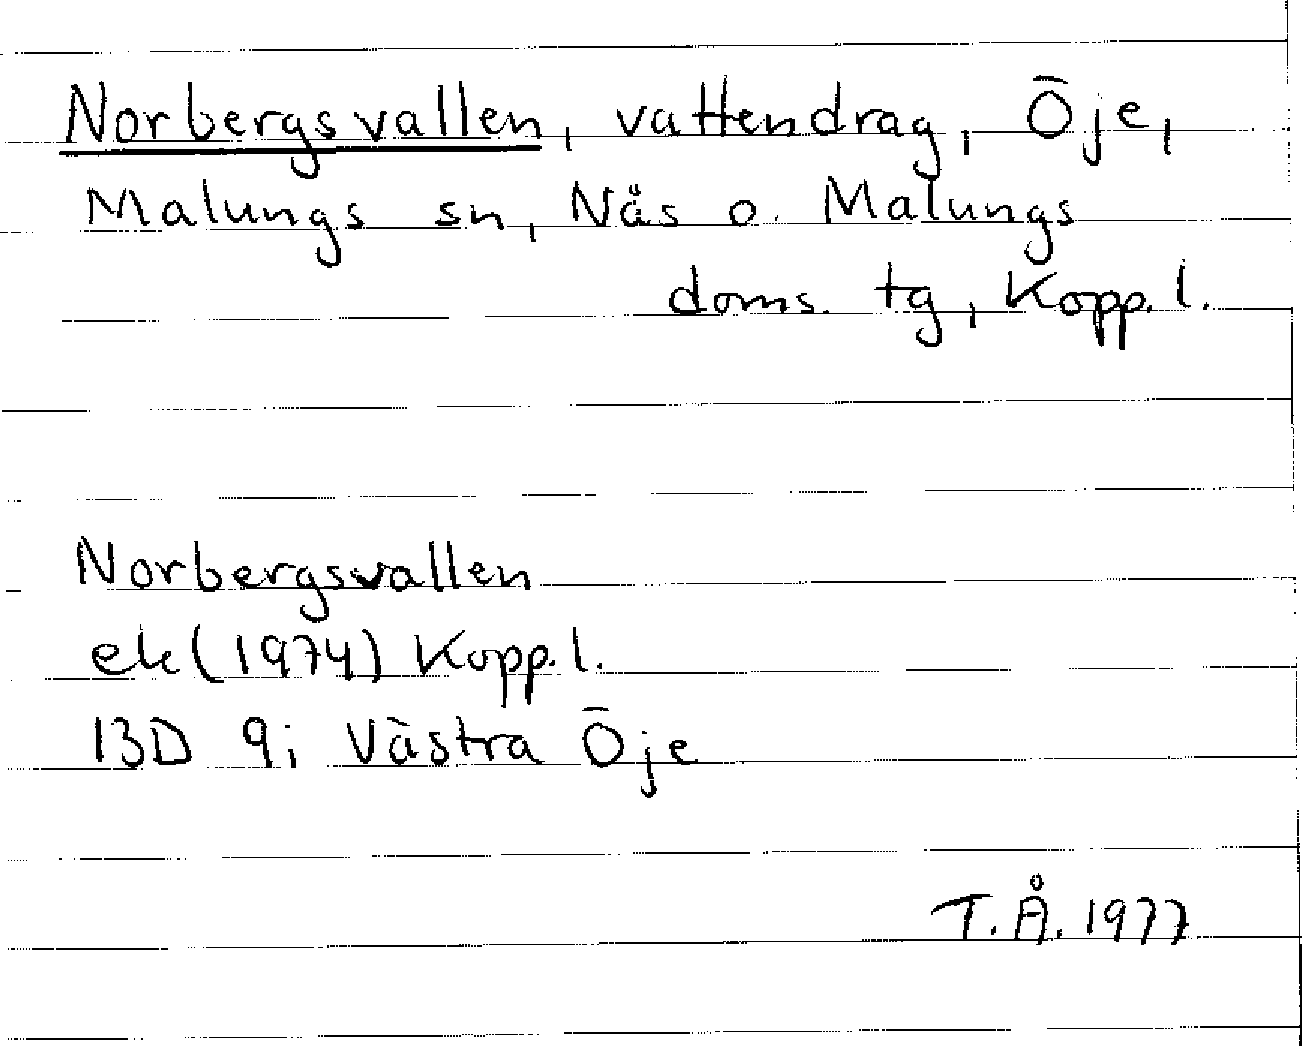 Norbergsvallen, vattendrag, Öje,
Malungs sn, Näs o. Malungs
doms. tg, Kopp. l.
Norbergsvallen
ek (1974) Kopp. l.
13D 9i Västra Öje
T.Å. 1977